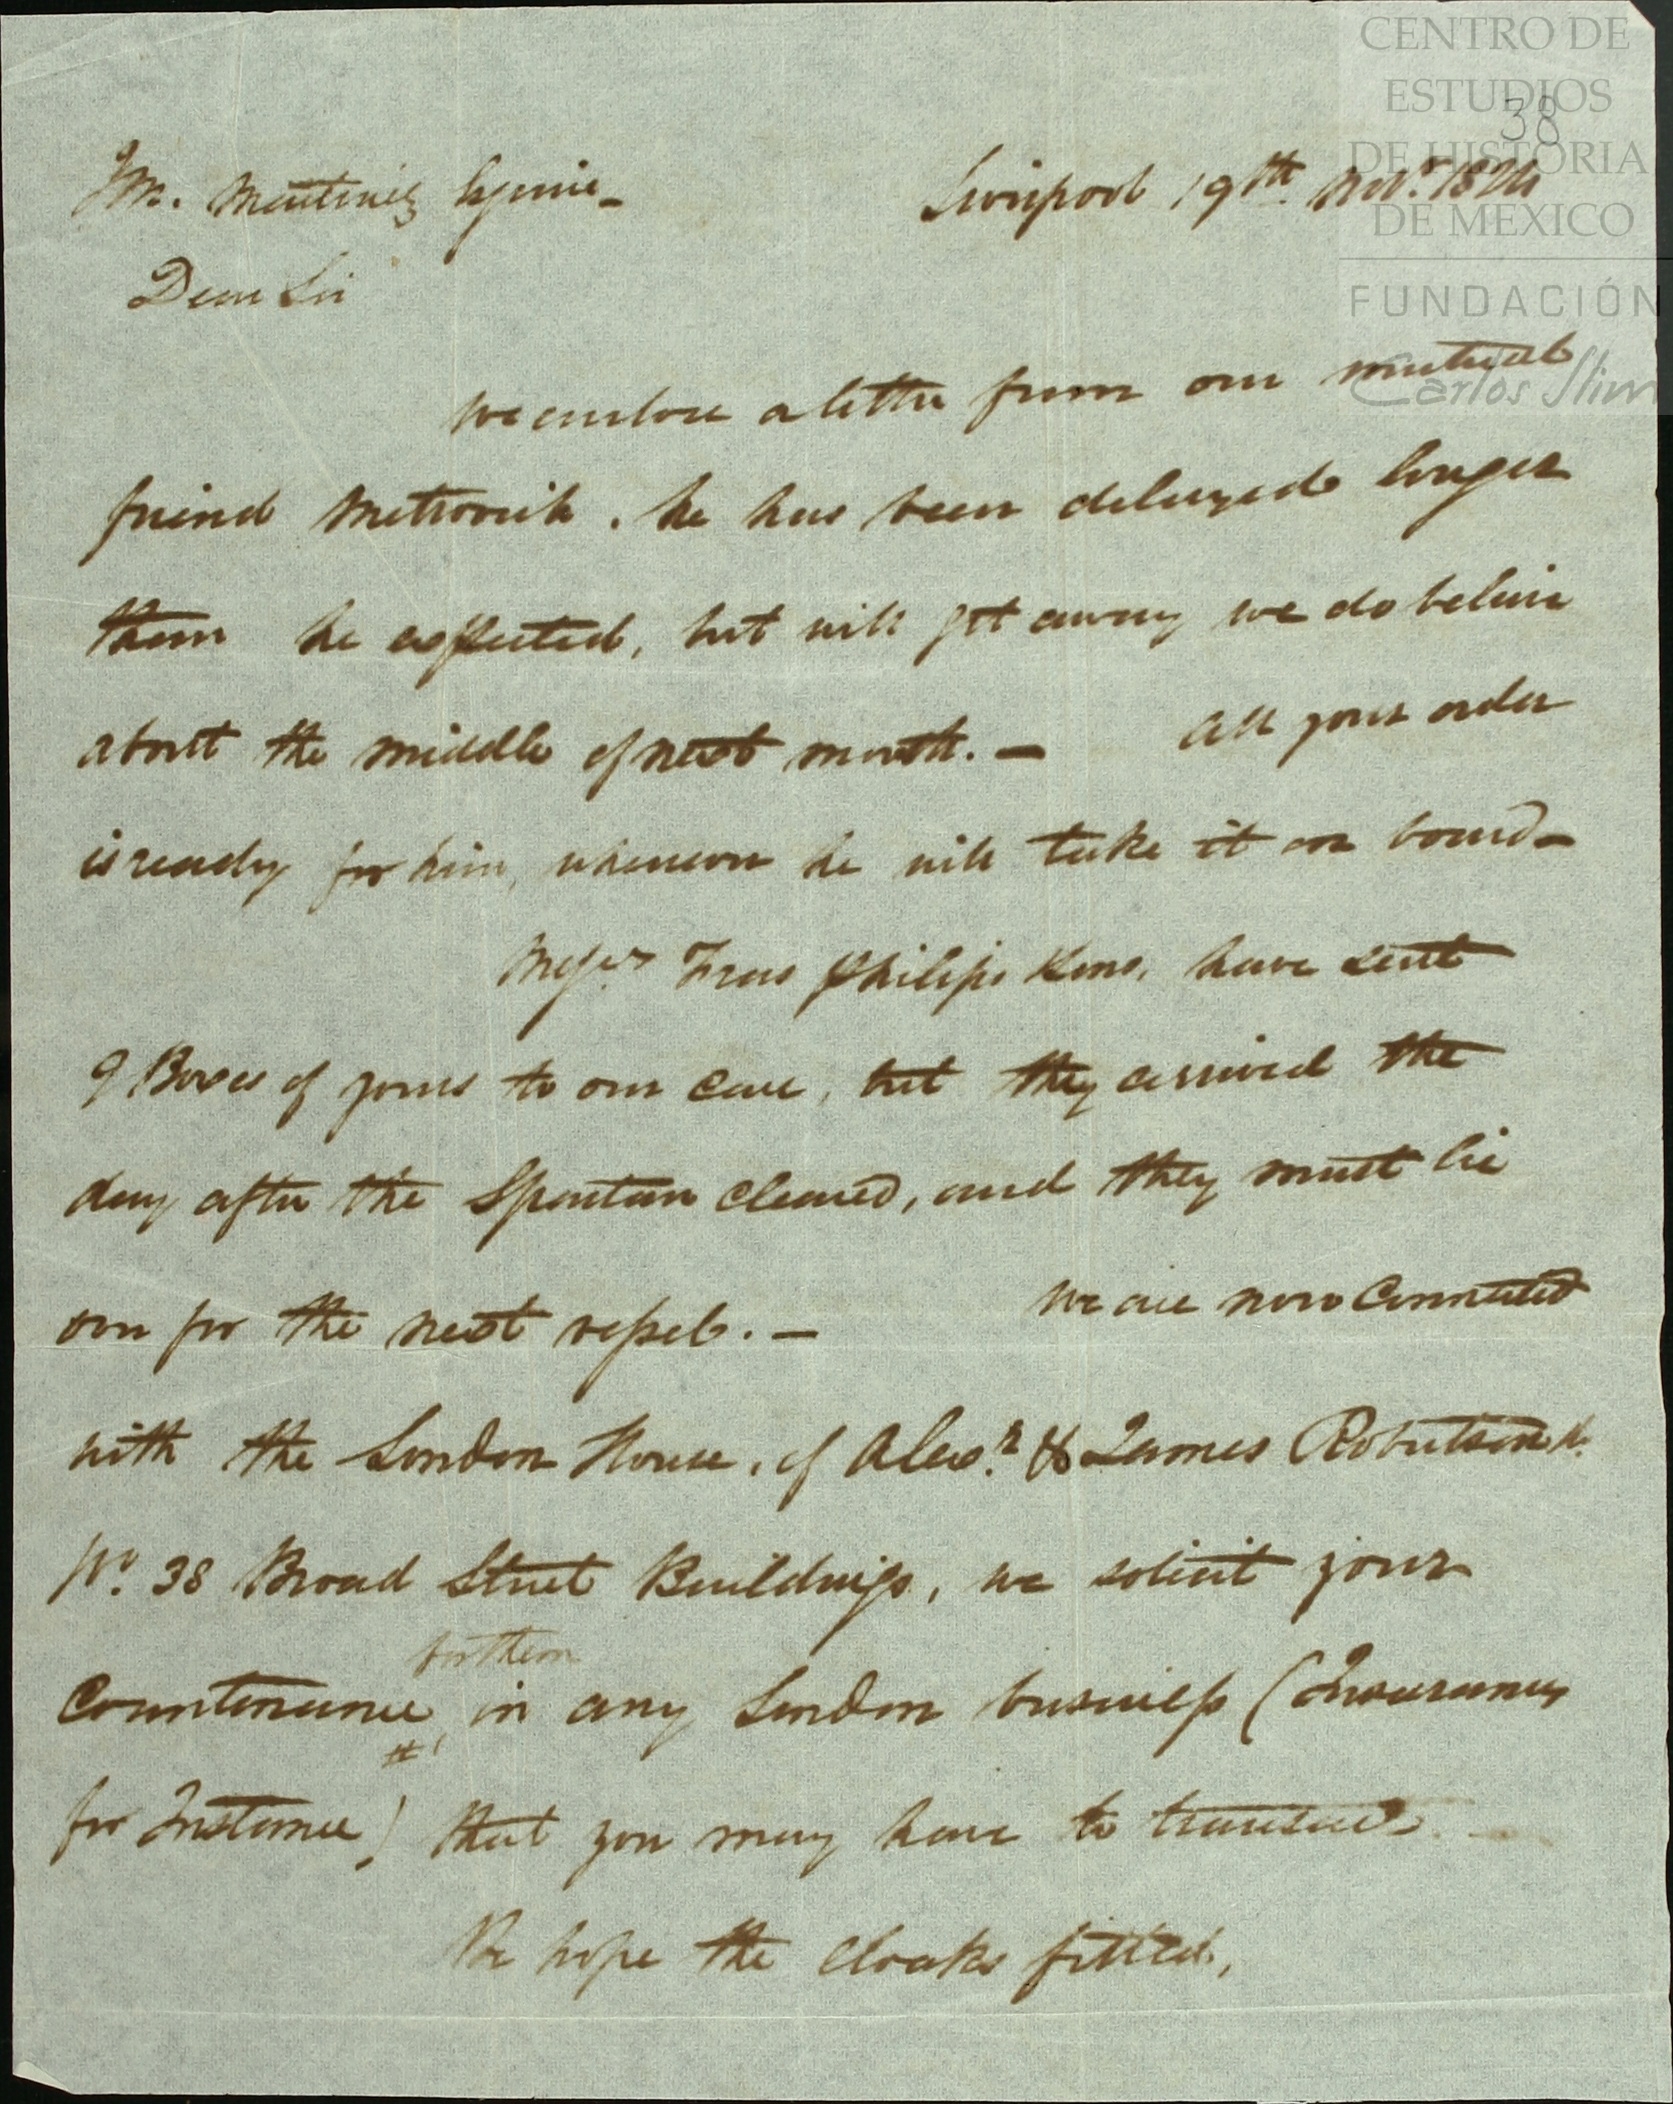 CENTRO DE
ESTUDIOS
DE HISTORIA
DE MEXICO
FUNDACIÓN
Carlos Slim
38
Liverpool 19th. Novr. 1824
Martinez Esquire -
Dear Sir
We enclose a letter from our mutual
friend . he has been delayed longer
than he expected, but will get away we do believe
about the middle of next month. — All your order
is ready for him, whenever he will take it on board -
Messrs Fras Philips have sent
9 Boxes of yours to our care, but they arrived the
day after the Spartan cleared, and they must lie
over for the next vessel. — We are now Connected
with the London House, of Alexr. & James Robertson
No. 38 Broad Street Buildings, we solicit your
for them
Countenance, in any London business (Insurances
for Instance) that you may have to transact.
We hope the Cloaks fitted,